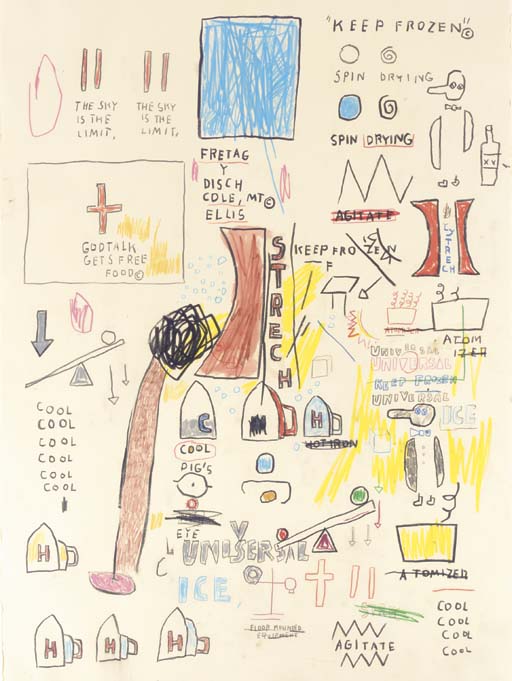 "KEEP FROZEN"©
SPIN DRYING
THE SKY
IS THE
LIMIT,
THE SKY
IS THE
LIMIT,
SPIN DRYING
FRETAG
Y
DISCH
COLE, MT©
ELLIS
XV
AGITATE
GODTALK
GETS FREE
FOOD©
STRECH
KEEP FROZEN
F
STRECH
ATOMIZER
UNIVERSAL
UNIVERSAL
KEEP FROZEN
UNIVERSAL
ICE
COOL
COOL
COOL
COOL
COOL
COOL
C
H
HOT IRON
COOL
PIG'S
EYE
H
Y
UNISERSAL
ICE
ATOMIZED
FLOOR MOUNTED
EQUIPMENT
AGITATE
COOL
COOL
COOL
COOL
H
H
H